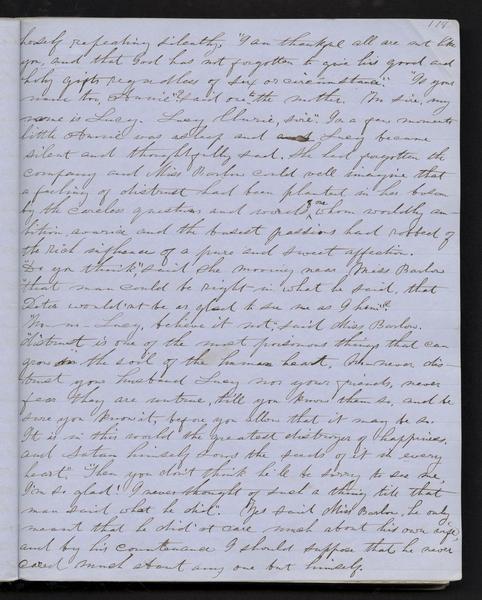 119
herself repeating silently, "I am thankful all are not like
you, and that God has not forgotten to give his good and
holy gifts regardless of sex or circumstance." "Is your
name too, Annie?" said one to the mother. "No sire, my
name is Lucy. Lucy Clurie, sire". In a few moments
little Annie was asleep and Lucy became
silent and thoughtfully sad. She had forgotten the
company and Miss Barlow could well imagine that
a feeling of distrust had been planted in her bosom
by the careless questions and words of one, whom worldly am-
bition, avarice and the basest passions had robbed of
the rich of a pure and sweet affection.
"Do you think," said she moving near Miss Barlow
"that man could be right in what he said, that
Peter would'nt be as glad to see me as I him?"
"No- no- Lucy, believe it not" said Miss Barlow.
"distrust is one of the most poisonous things that can
grow in the soil of the human heart. Never dis-
trust your husband Lucy nor your friends, never
fear they are untrue, till you know them so, and be
sure you know it, before you allow that it may be so.
It is in this world the greatest distroyer of happiness,
and Satan himself sows the seeds of it in every
heart." "Then you don't think he'll be sorry to see me,
I'm so glad! I never thought of such a thing till that
man said what he did". "Yes said Miss Barlow, he only
meant that he did'nt care much about his own wife,
and by his countenance I should suppose that he never
cared much about any one but himself.